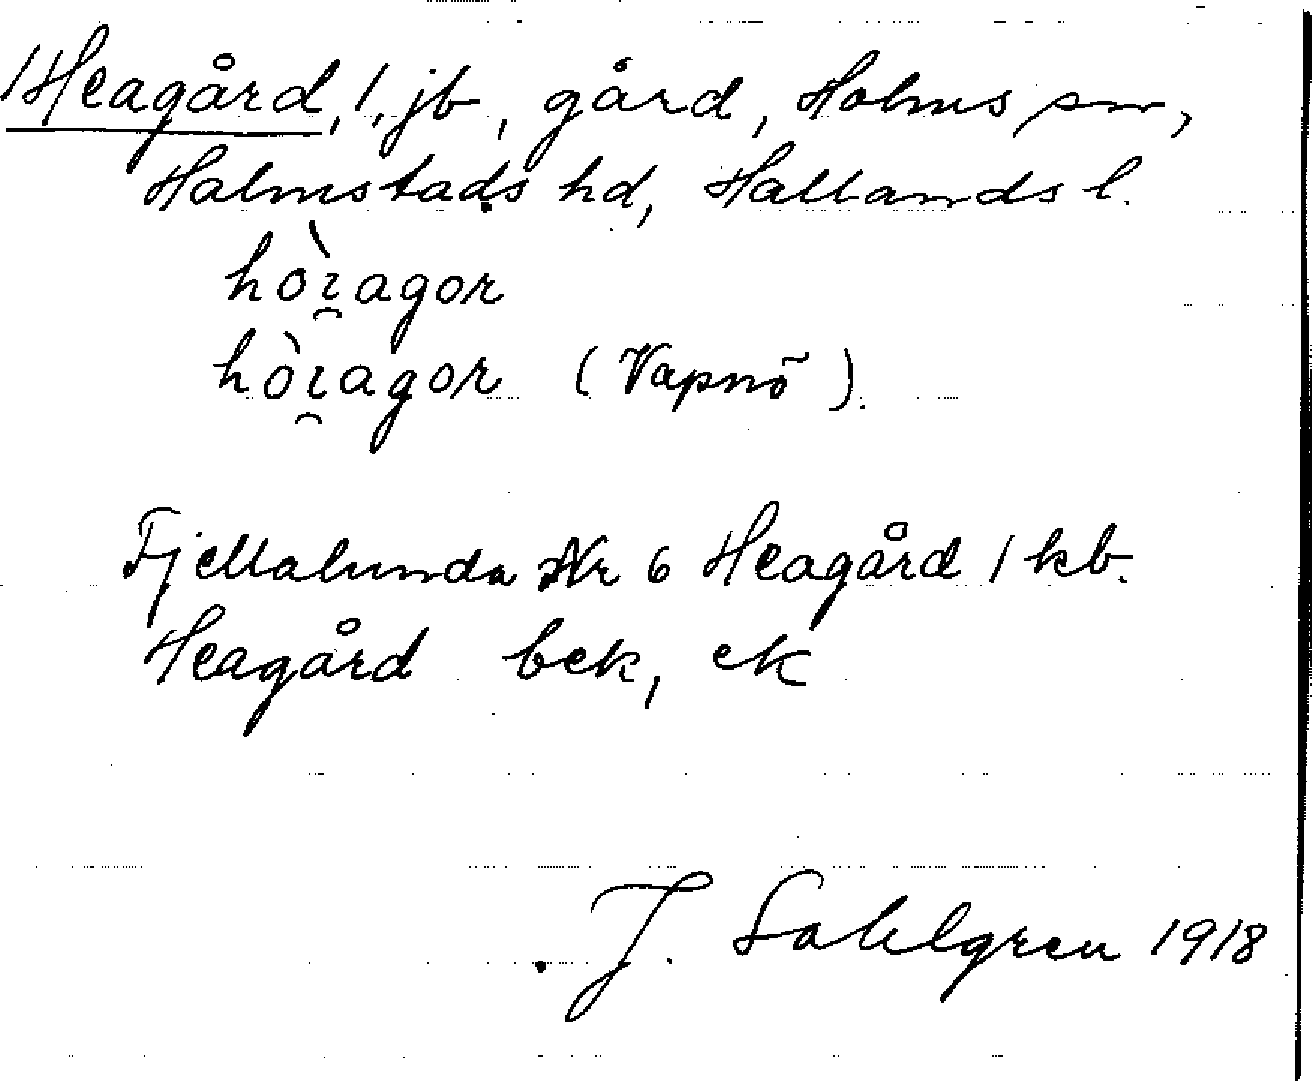 1 Heagård, 1, jb, gård, Holms sn,
Halmstads hd, Hallands l.
hòi̯agor
hòi̯agor (Vapnö).
Fjellalunda Nr 6 Heagård 1 kb.
Heagård bek, ek
J. Sahlgren 1918